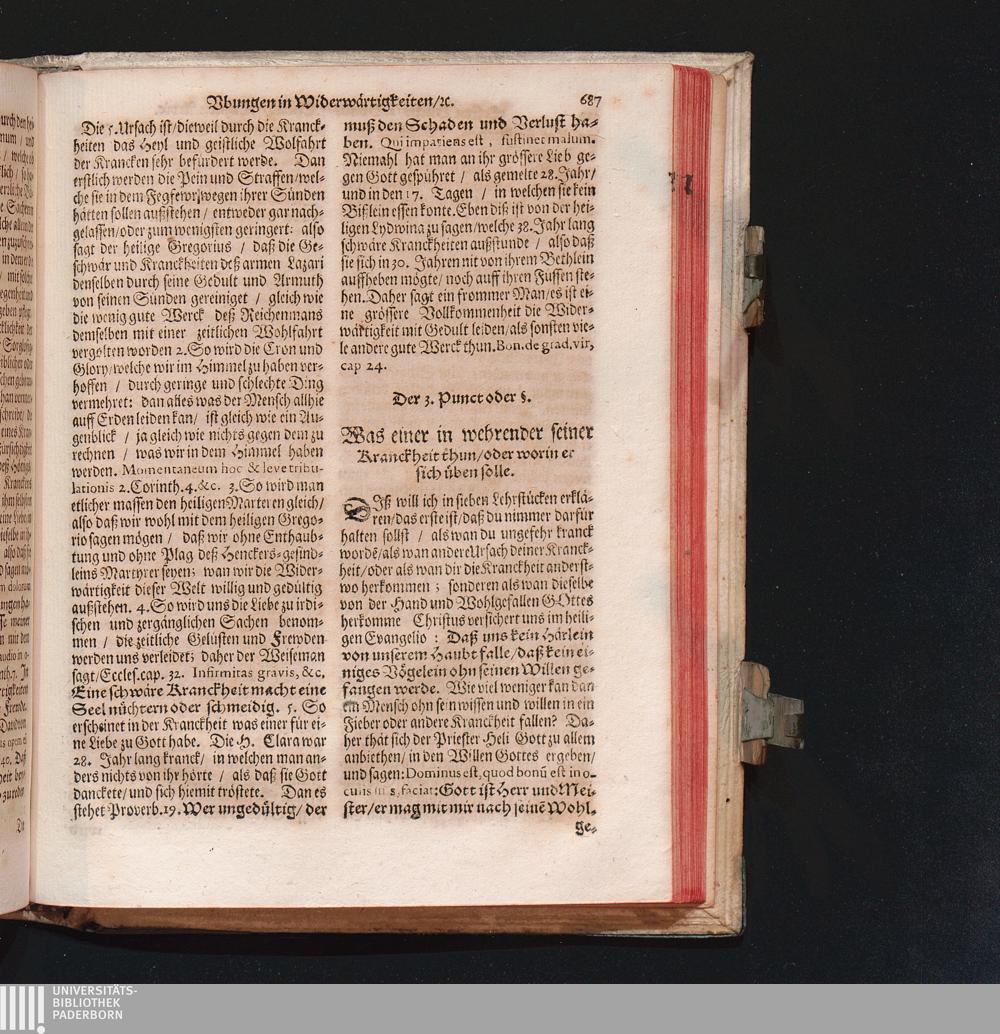 Vbungen in Widerwärtigkeiten/ꝛc. 687
Die 5. Ursach ist/ dieweil durch die Kranck-
heiten das Heyl und geistliche Wolfahrt
der Krancken sehr befürdert werde. Dan
erstlich werden die Pein und Straffen/wel-
che sie in dem Fegfewr/wegen ihrer Sünden
hätten sollen außstehen/ entweder gar nach-
gelassen/oder zum wenigsten geringert: also
sagt der heilige Gregorius / daß die Ge-
schwär und Kranckheiten deß armen Lazari
denselben durch seine Gedult und Armuth
von seinen Sünden gereiniget / gleich wie
die wenig gute Werck deß Reichenmans
demselben mit einer zeitlichen Wohlfahrt
vergolten worden 2. So wird die Cron und
Glory/welche wir im Himmel zu haben ver-
hoffen / durch geringe und schlechte Ding
vermehret: dan alles was der Mensch allhie
auff Erden leiden kan/ ist gleich wie ein Au-
genblick / ja gleich wie nichts gegen dem zu
rechnen / was wir in dem Himmel haben
werden. Momentaneum hoc & leve tribu-
lationis 2. Corinth. 4. &c. 3. So wird man
etlicher massen den heiligen Marteren gleich/
also daß wir wohl mit dem heiligen Grego-
rio sagen mögen / daß wir ohne Enthaub-
tung und ohne Plag deß Henckers-gesind-
leins Martyrer seyen; wan wir die Wider-
wärtigkeit dieser Welt willig und gedültig
außstehen. 4. So wird uns die Liebe zu irdi-
schen und zergänglichen Sachen benom-
men / die zeitliche Gelüsten und Frewden
werden uns verleidet; daher der Weiseman
sagt/Eccles. cap. 32. Infirmitas gravis, &c.
Eine schwäre Kranckheit macht eine
Seel nüchtern oder schmeidig. 5. So
erscheinet in der Kranckheit was einer für ei-
ne Liebe zu Gott habe. Die H. Clara war
28. Jahr lang kranck/ in welchen man an-
ders nichts von ihr hörte / als daß sie Gott
danckete/ und sich hiemit tröstete. Dan es
stehet Proverb. 19. Wer ungedültig/ der
muß den Schaden und Verlust ha-
ben. Qui impatiens est, sustinet malum.
Niemahl hat man an ihr grössere Lieb ge-
gen Gott gespühret / als gemelte 28. Jahr/
und in den 17. Tagen / in welchen sie kein
Bißlein essen konte. Eben diß ist von der hei-
ligen Lydwina zu sagen/welche 38. Jahr lang
schwäre Kranckheiten außstunde / also daß
sie sich in 30. Jahren nit von ihrem Bethlein
auffheben mögte/ noch auff ihren Fussen ste-
hen. Daher sagt ein frommer Man/es ist ei-
ne grössere Vollkommenheit die Wider-
wärtigkeit mit Gedult leiden/als sonsten vie-
le andere gute Werck thun. Bon. de grad. vir.
cap 24.
Der 3. Punct oder §.
Was einer in wehrender seiner
Kranckheit thun/oder worin er
sich üben solle.
DIß will ich in sieben Lehrstücken erklä-
ren/das erste ist/ daß du nimmer darfür
halten sollst / als wan du ungefehr kranck
wordē/als wan andere Ursach deiner Kranck-
heit/oder als wan dir die Kranckheit anderst-
wo herkommen; sonderen als wan dieselbe
von der Hand und Wohlgefallen GOttes
herkomme Christus versichert uns im heili-
gen Evangelio: Daß uns kein Härlein
von unserem Haubt falle/daß kein ei-
niges Vögelein ohn seinen Willen ge-
fangen werde. Wie viel weniger kan dan
ein Mensch ohn sein wissen und willen in ein
Fieber oder andere Kranckheit fallen? Da-
her thät sich der Priester Heli Gott zu allem
anbiethen/ in den Willen Gottes ergeben/
und sagen: Dominus est, quod bonū est in o-
culis suis, faciat: Gott ist Herr und Mei-
ster/er mag mit mir nach seinē Wohl-
ge-
UNIVERSITÄTS-
BIBLIOTHEK
PADERBORN